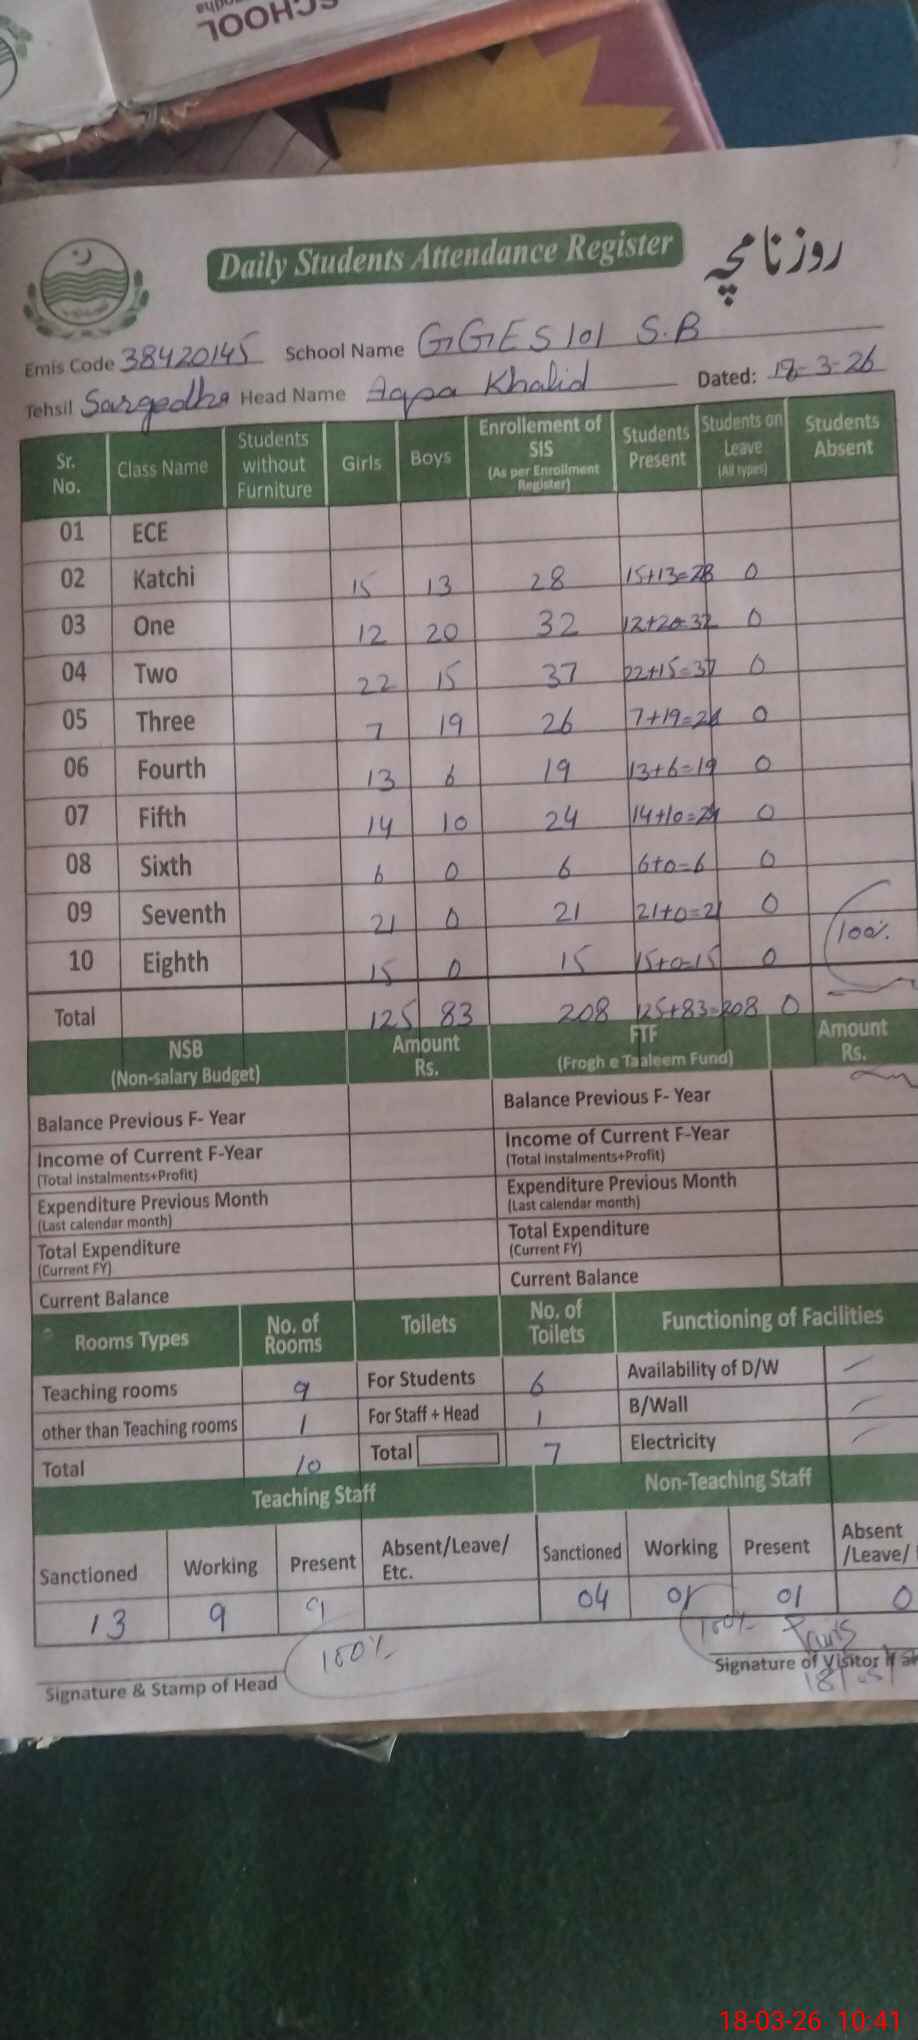 SCHOOL
Daily Students Attendance Register روزنامچہ
Emis Code 38420145 School Name GGES 101 S.B
Tehsil Sargodha Head Name Iqra Khalid Dated: 18-3-26
Sr. No. Class Name Students without Furniture Girls Boys Enrollement of SIS (As per Enrollment Register) Students Present Students on Leave (All types) Students Absent
01 ECE
02 Katchi 15 13 28 15+13=28 0
03 One 12 20 32 12+20=32 0
04 Two 22 15 37 22+15=37 0
05 Three 7 19 26 7+19=26 0
06 Fourth 13 6 19 13+6=19 0
07 Fifth 14 10 24 14+10=24 0
08 Sixth 6 0 6 6+0=6 0
09 Seventh 21 0 21 21+0=21 0
100%
10 Eighth 15 0 15 15+0=15 0
Total 125 83 208 125+83=208 0
NSB (Non-salary Budget) Amount Rs. FTF (Frogh e Taaleem Fund) Amount Rs.
Balance Previous F- Year Balance Previous F- Year
Income of Current F-Year Income of Current F-Year
(Total instalments+Profit) (Total instalments+Profit)
Expenditure Previous Month Expenditure Previous Month
(Last calendar month) (Last calendar month)
Total Expenditure Total Expenditure
(Current FY) (Current FY)
Current Balance Current Balance
Rooms Types No. of Rooms Toilets No. of Toilets Functioning of Facilities
Teaching rooms 9 For Students 6 Availability of D/W
other than Teaching rooms 1 For Staff + Head 1 B/Wall
Total 10 Total 7 Electricity
Teaching Staff Non-Teaching Staff
Sanctioned Working Present Absent/Leave/ Etc. Sanctioned Working Present Absent /Leave/
13 9 9 04 01 01 0
100% 100%
Signature & Stamp of Head Signature of Visitor
18-03-26 10:41